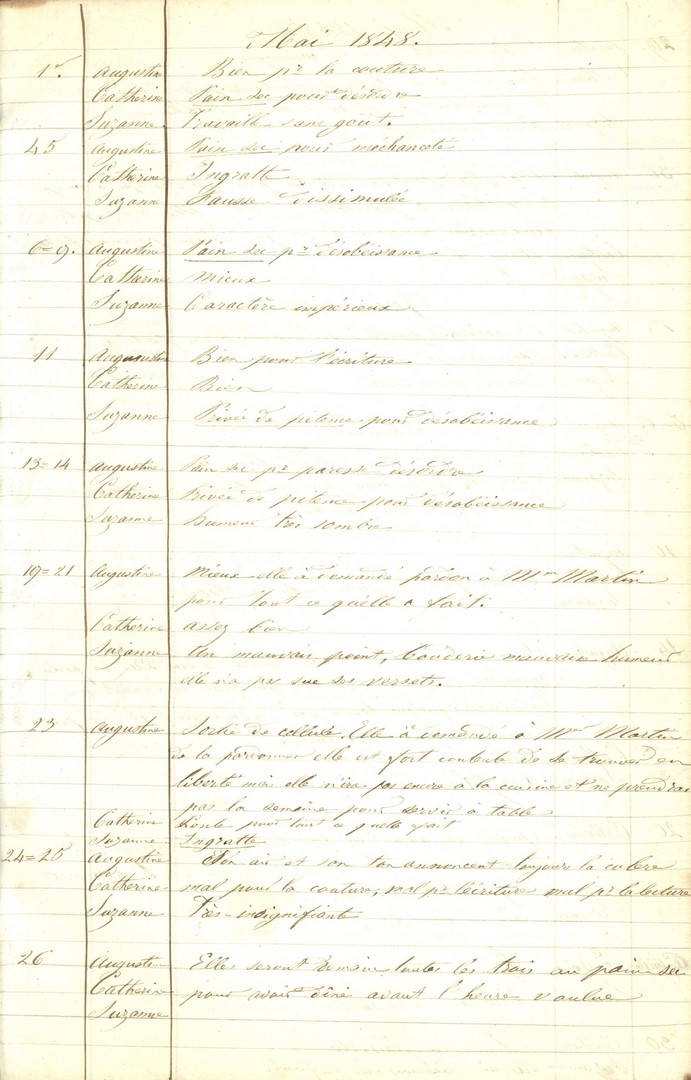 Mai 1848.
1r. Augustine Bien pr la couture
Catherine Pain sec pour désordre
Suzanne. Travaille sans gout.
45 Augustine Pain sec pour mechancete
Catherine Ingratte
Suzanne Fausse Dissimulée
6=9. Augustine Pain sec pr désobéisance
Catherine Mieux
Suzanne Caractère impérieux
11 Augustine Bien pour l'écriture
Catherine Bien
Suzanne Privée de pitence pour désobéisance
13=14 Augustine Pain sec pr paresse désordre
Catherine Privée de pitence pour désobéissance
Suzanne humeur très sombre
19=21 Augustine Mieux elle à demandé pardon à Mme Martin
pour tout ce qu'elle a fait.
Catherine Assez bien
Suzanne Un mauvais point, bouderie mauvaise humeur
elle n'a pas sue ses versets.
23 Augustine Sortie de cellule. Elle à demandé à Mme Martin
de la pardonner elle est fort contente de se trouver en
liberté mais elle n'ira pas encore à la cuisine et ne prendra
pas la semaine pour servir à table
Catherine Lente pour tout ce quelle fait
Suzanne Ingratte
24=25 Augustine Son air et son ton annoncent toujours la colere
Catherine mal pour la couture, mal pr l'écriture mal pr la lecture
Suzanne Très-insignifiante
26 Augustine Elles seront demain toutes les trois au pain sec
Catherine pour avoir dîné avant l'heure voulue
Suzanne